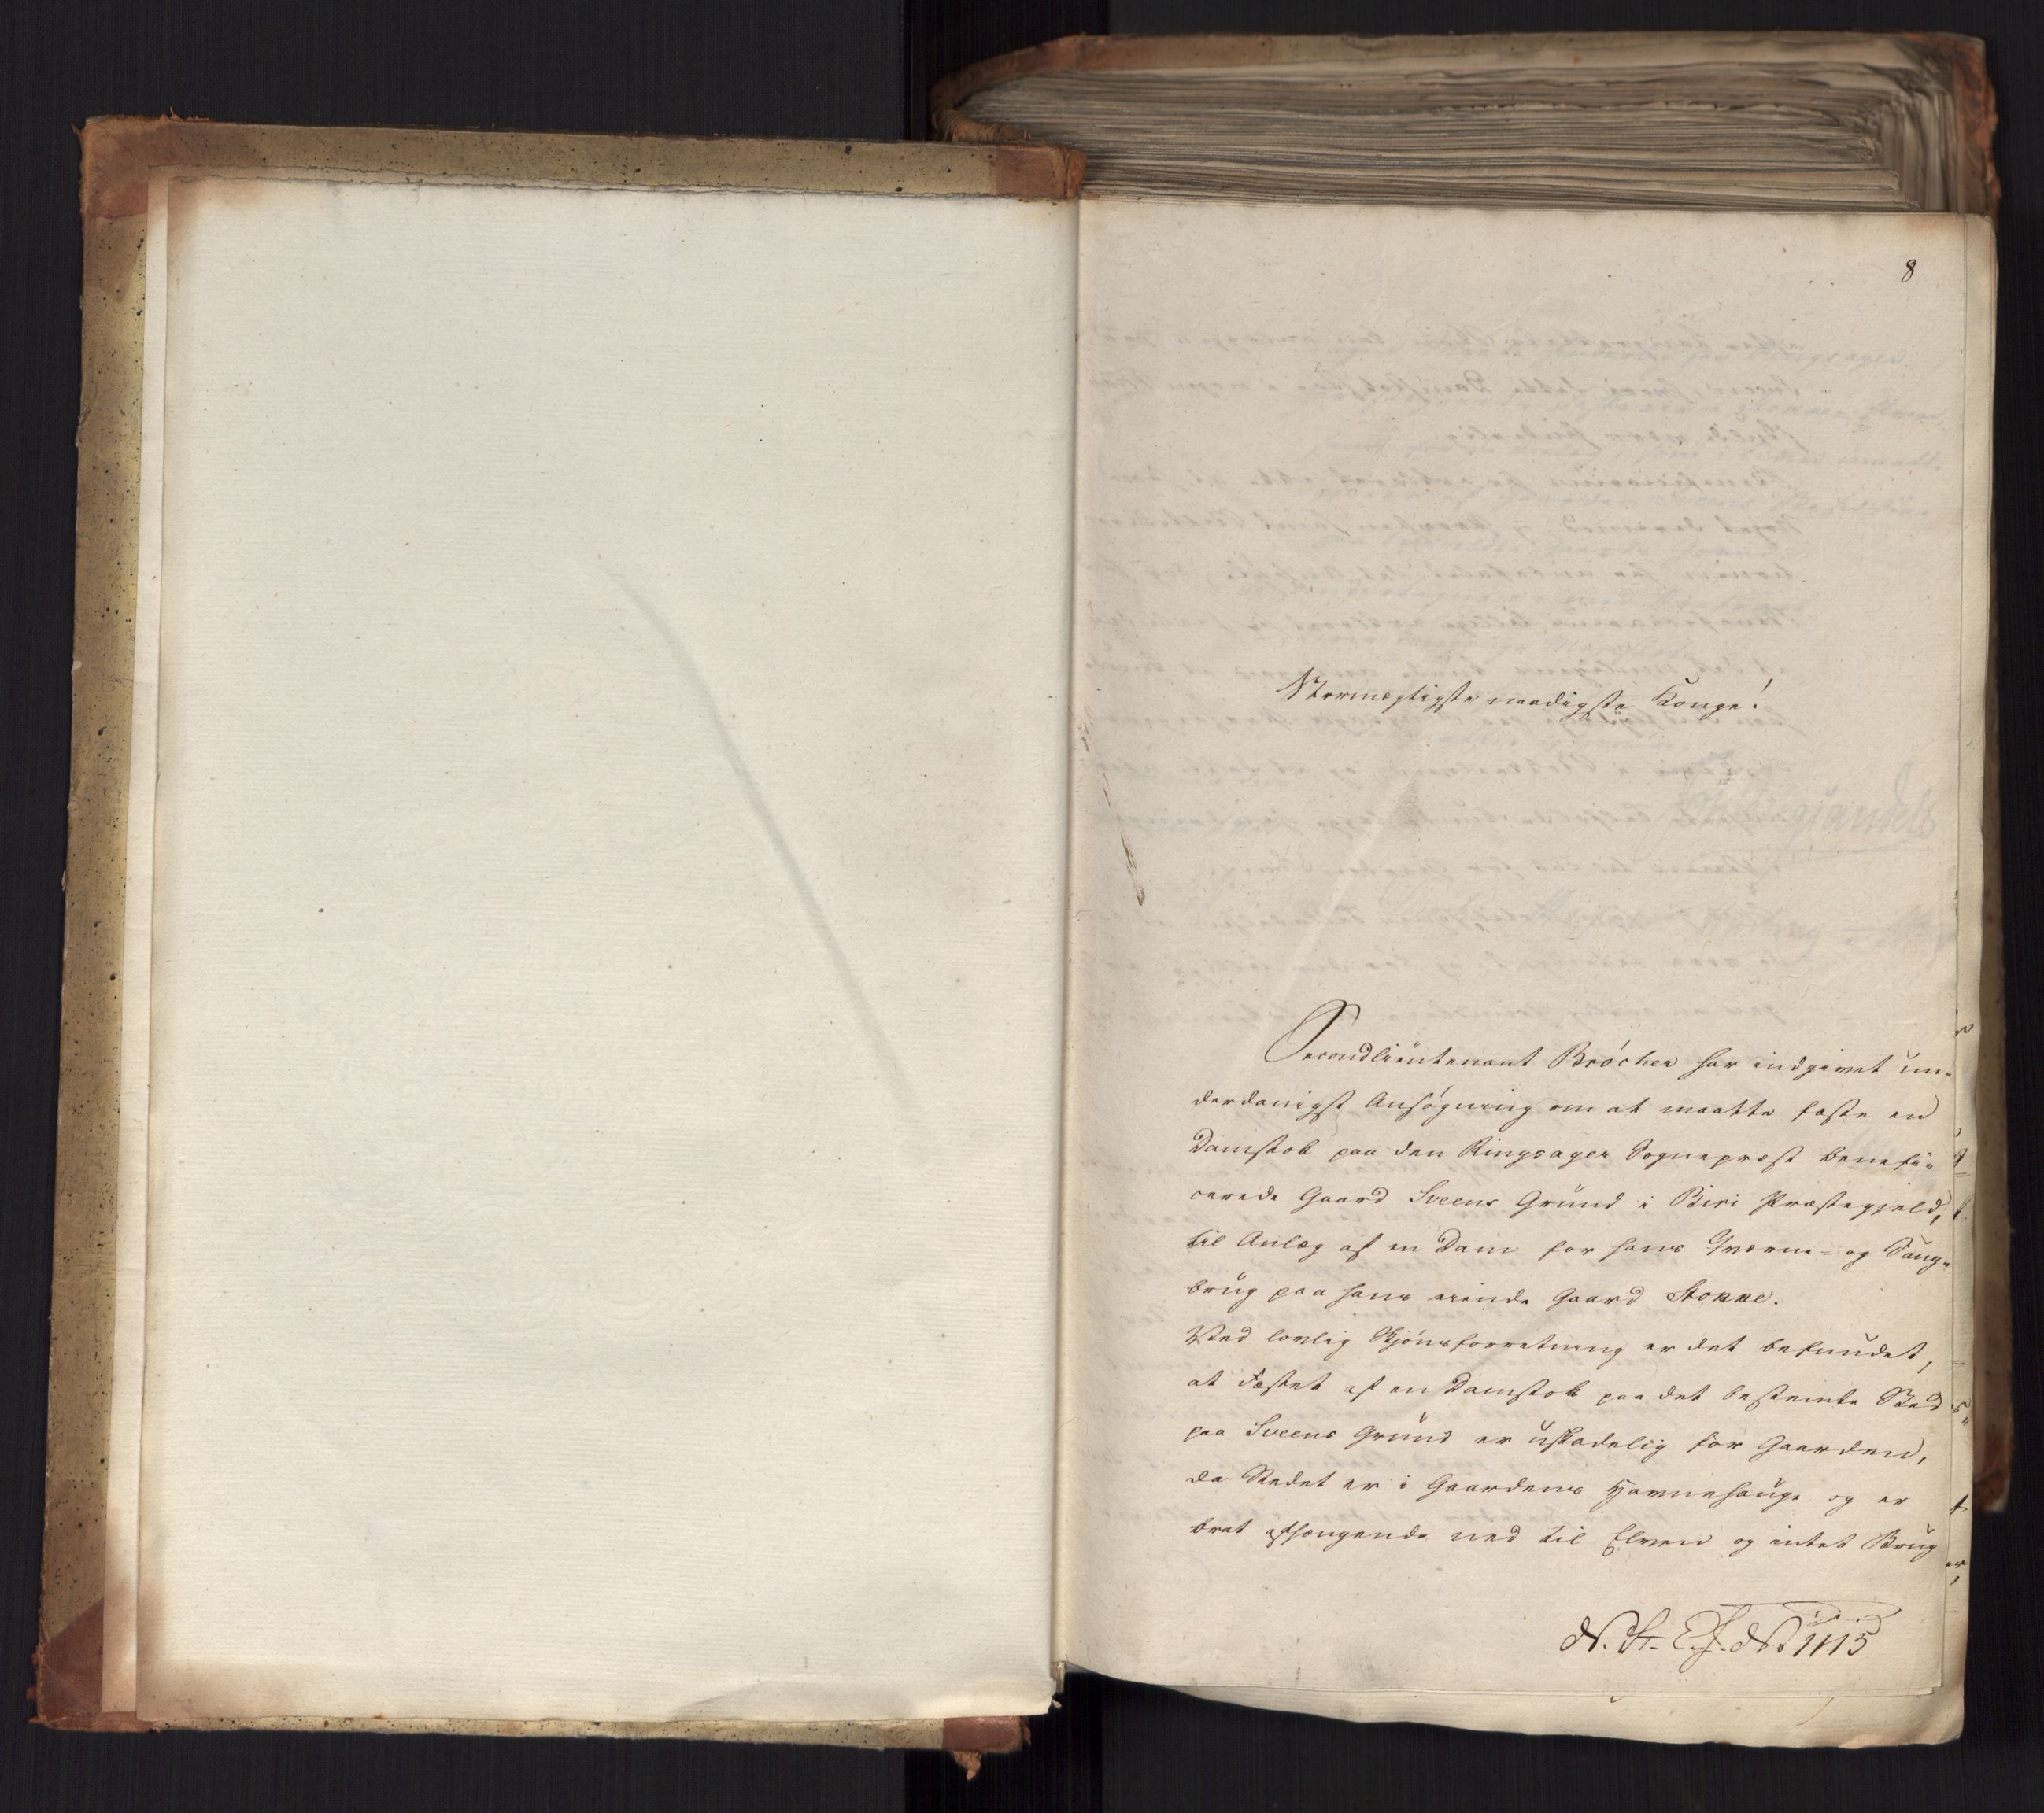 8
Stormægtigste naadigste Konge!
Secondlieutenant Bröcher har indgivet un-
derdanigst Ansøgning om at maatte fæste en
Damstok paa den Ringsager Sognepræst benefi-
cerede Gaard Sveens Grund i Biri Præstegjeld,
til Anlæg af en Dam for hans Qværne- og Saug-
brug paa hans eiende Gaard Stokke.
Ved lovlig Skjönsforretning er det befundet,
at Fæstet af en Damstok paa det bestemte Sted
paa Sveens Grund er uskadelig for Gaarden,
da Stedet er i Gaardens Havnehauge og er
brat afhængende ned til Elven og intet Brug